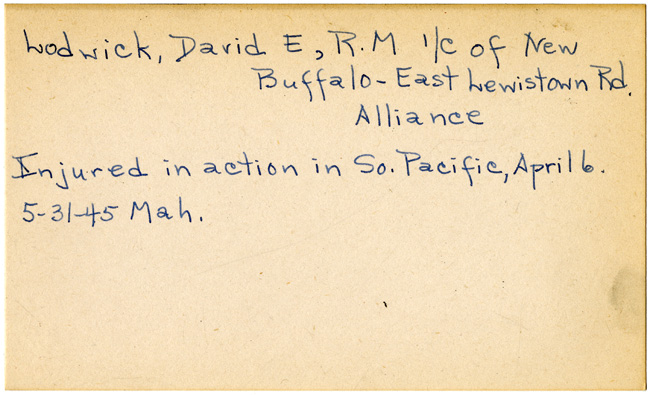 Lodwick, David E, R.M 1/c of New
Buffalo-East Lewistown Rd.
Alliance
Injured in action in So. Pacific, April 6.
5-31-45 Mah.